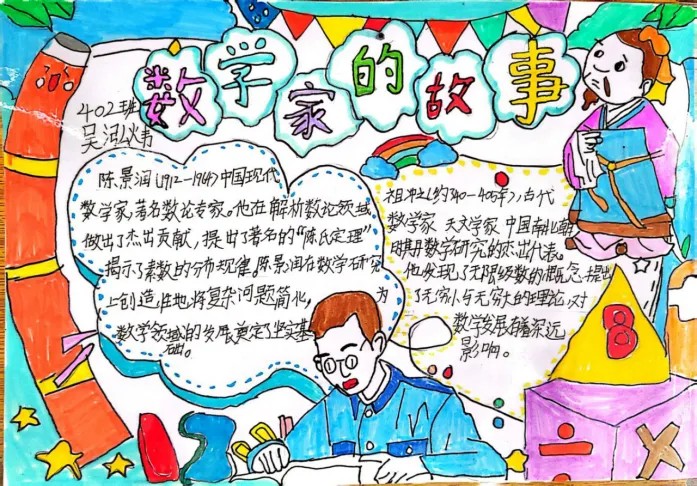 数学家的故事
402班
吴
陈景润(1912-1964)中国现代
数学家,著名数论专家。他在解析数论领域
做出了杰出贡献,提出了著名的“陈氏定理”
揭示了素数的分布现象,陈景润在数学研究
上创造性地将复杂问题简化,为
数学领域的发展奠定坚实基
础。
祖冲之(约340-405年),古代
数学家 天文学家 中国南北朝
时期数学研究的杰出代表。
他发现了无限级数的概念,提出
了无穷小与无穷大的理论,对
数学发展有着深远
影响。
8
÷ ×
1 2